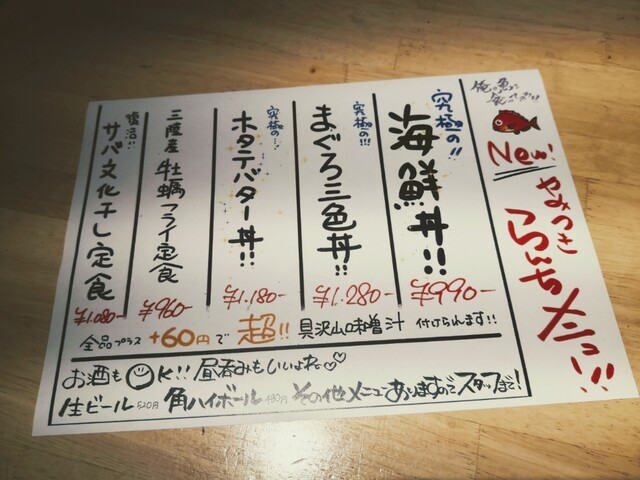 New!
やみつき
らんちメニュー!!
究極の!!
海鮮丼!!
¥990-
究極の!!!
まぐろ三色丼!!
¥1.280-
究極の…!
ホタテバター丼!!
¥1.180-
三陸産 牡蠣フライ定食
¥960-
復活!!
サバ文化干し定食
¥1.080-
全品プラス +60円で 超!! 具沢山味噌汁 付けられます!!
お酒もOK!! 昼呑みもいいよね。♡♡
生ビール520円 角ハイボール480円 その他メニューありますのでスタッフまで!